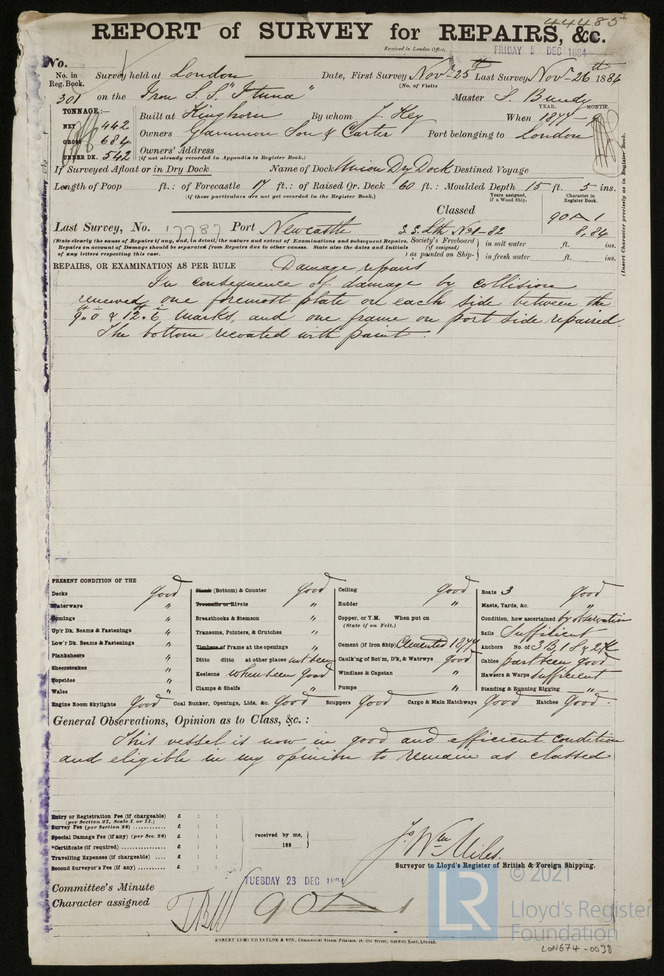 44485
REPORT of SURVEY for REPAIRS, &c.
Received in London Office,
FRIDAY 5 DEC 1884
No.
No. in Reg. Book. Survey held at London Date, First Survey Novr 25th Last Survey Novr 26th 1884
(No. of Visits
301 on the Iron S.S. "Ituna" Master S. Bundy
TONNAGE:— YEAR. MONTH.
NET 442 Built at Kinghorn By whom J. Key When 1877 - 9
GROSS 684 Owners Gammon Son & Carter Port belonging to London
UNDER DK. 542 Owners' Address
(if not already recorded in Appendix to Register Book.)
If Surveyed Afloat or in Dry Dock Name of Dock Union Dry Dock Destined Voyage
Length of Poop ft.: of Forecastle 17 ft.: of Raised Qr. Deck 60 ft.: Moulded Depth 15 ft. 5 ins.
(if these particulars are not yet recorded in the Register Book.)
Years assigned, if a Wood Ship. Character in Register Book.
Classed 90A1
Last Survey, No. 17787 Port Newcastle 8,84
(State clearly the cause of Repairs if any, and, in detail, the nature and extent of Examinations and subsequent Repairs. Society's Freeboard in salt water ft. ins.
Repairs on account of Damage should be separated from Repairs due to other causes. State also the dates and initials (if assigned)
of any letters respecting this case. as painted on Ship- in fresh water ft. ins.
(Insert Character precisely as in Register Book.)
REPAIRS, OR EXAMINATION AS PER RULE Damage repairs
In consequence of damage by collision
renewed one foremost plate on each side between the
9.0 & 12.6 marks, and one frame on port side repaired.
The bottom recoated with paint.
PRESENT CONDITION OF THE
Decks good
Waterways "
Comings "
Up'r Dk. Beams & Fastenings "
Low'r Dk. Beams & Fastenings "
Planksheers "
Sheerstrakes "
Topsides "
Wales "
Plank (Bottom) & Counter good
Treenails or Rivets "
Breasthooks & Stemson "
Transoms, Pointers, & Crutches "
Timbers of Frame at the openings "
Ditto ditto at other places not seen
Keelsons where seen good
Clamps & Shelfs "
Ceiling good
Rudder "
Copper, or Y.M. When put on
(State if on Felt.)
Cement (if Iron Ship) Cemented 1877
Caulk'ng of Bot'm, D'k, & Watrwys good
Windlass & Capstan "
Pumps "
Boats 3 good
Masts, Yards, &c. "
Condition, how ascertained by observation
Sails Sufficient
Anchors No. of 3 B 1 S & 2 K
Cables part seen good
Hawsers & Warps sufficient
Standing & Running Rigging "
Engine Room Skylights Good Coal Bunker, Openings, Lids, &c. Good Scuppers Good Cargo & Main Hatchways Good Hatches Good.
General Observations, Opinion as to Class, &c.:
This vessel is now in good and efficient condition
and eligible in my opinion to remain as classed
Entry or Registration Fee (if chargeable) £ : :
(per Section 27, Scale I. or II.)
Survey Fee (per Section 28) £ : :
Special Damage Fee (if any) (per Sec. 28) £ : :
*Certificate (if required) £ : :
Travelling Expenses (if chargeable) £ : :
Second Surveyor's Fee (if any) £ : :
received by me,
188
Jos Wm Miles.
Surveyor to Lloyd's Register of British & Foreign Shipping.
Committee's Minute TUESDAY 23 DEC 1884
Character assigned 90A1
ROBERT EDMUND TAYLOR & SON,
© 2021
LR Lloyd's Register
Foundation
LON674-0038